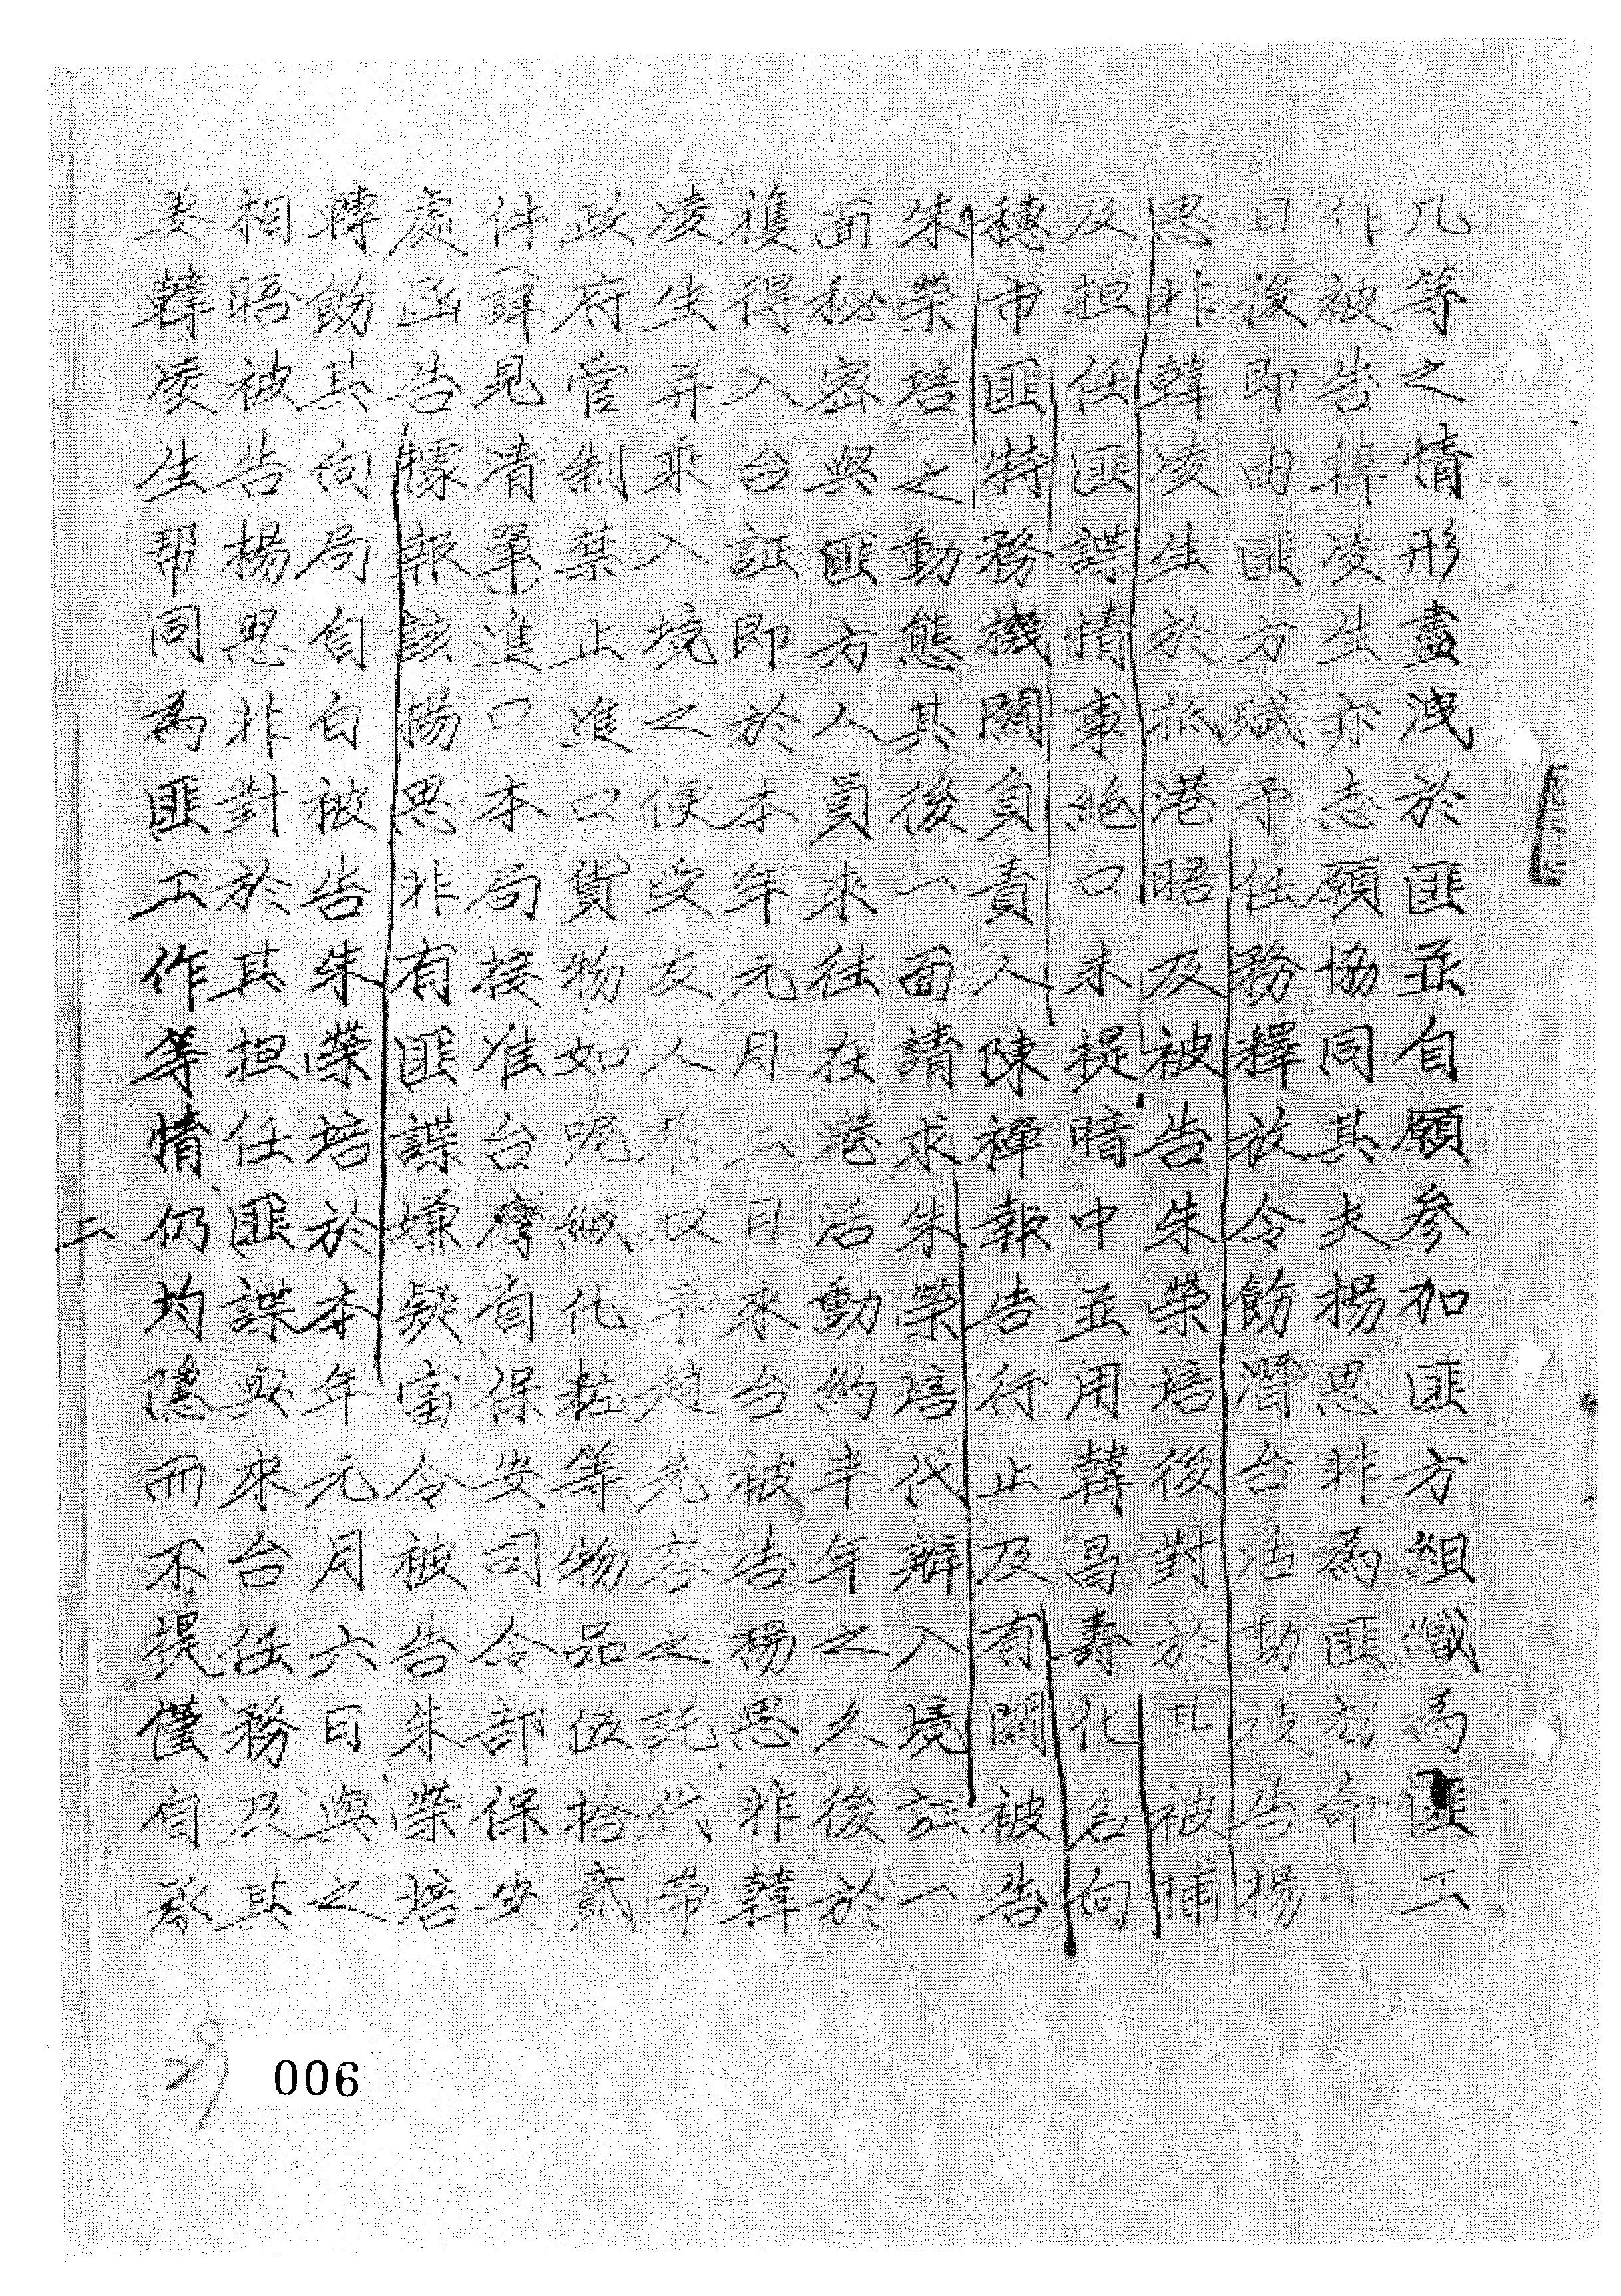 凡等之情形盡洩於匪並自願参加匪方組織為匪工
作被告韓凌生亦志願協同其夫楊思非為匪
日後即由匪方賦予任務釋放令飭潛台活動被告楊
思非韓凌生於抵港晤及被告朱榮培後對於被捕
及担任匪諜情事絶口未提暗中並用韓昌壽化名向
穗市匪特務機關負責人陳禪報告行止及有關被告
朱榮培之動態其後一面請求朱榮培代辦入境証一
面秘密與匪方人員來往在港活動約半年之久後於
複得入台証即於本年元月二日來台被告楊思非韓
凌生并乘入境之便受友人之託代帶
政府管制禁止進口貨物如呢絨化粧等物品伍拾貳
件詳見清單進口本局接准台灣省保安司令部保安
處函告據報該楊思非有匪諜嫌疑當令被告朱榮培
轉飭其向局自白被告朱榮培於本年元月六日與之
相晤被告楊思非對於其担任匪諜與來台任務及其
妻韓凌生帮同為匪工作等情仍均隱而不提僅自承
二
006